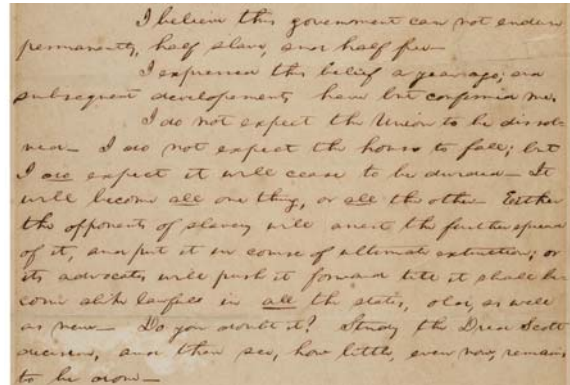 I believe this government can not endure
permanently, half slave, and half free—
I expressed this belief a year ago; and
subsequent developements have but confirmed me.
I do not expect the Union to be dissol-
ved— I do not expect the house to fall; but
I do expect it will cease to be divided— It
will become all one thing, or all the other— Either
the opponents of slavery will arrest the further spread
of it, and put it in course of ultimate extinction; or
its advocates will push it forward till it shall be-
come alike lawful in all the states, old, as well
as new— Do you doubt it? Study the Dred Scott
decision, and then see, how little, even now, remains
to be done—